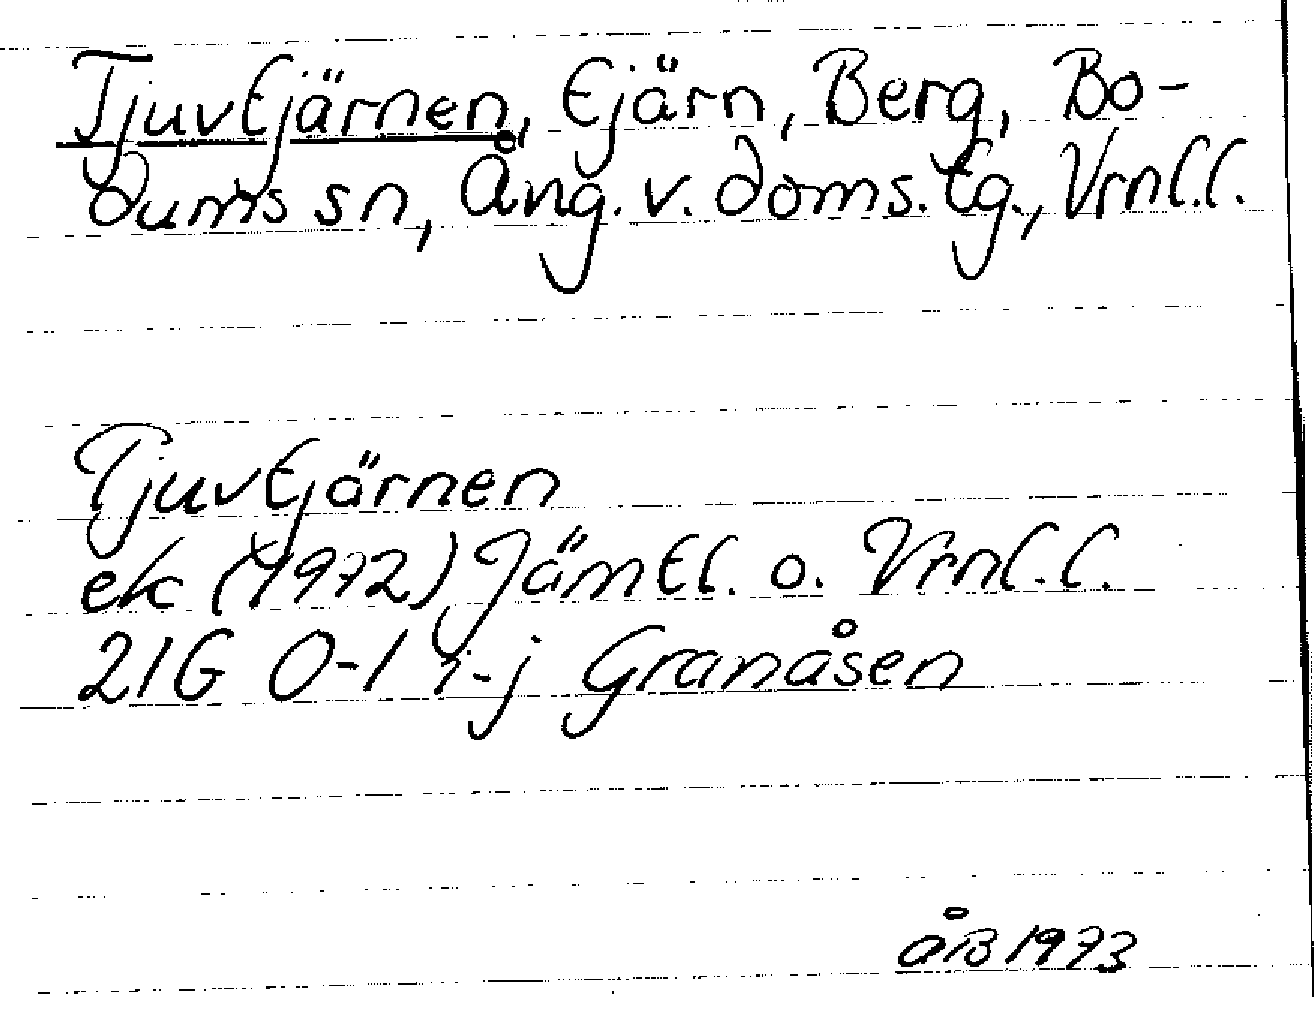 Tjuvtjärnen, tjärn, Berg, Bo-
dums sn, Ång. v. doms. tg., Vrnl.l.
Tjuvtjärnen
ek (1972) Jämtl. o. Vrnl.l.
21G 0-1 i-j Granåsen
ÅB 1973